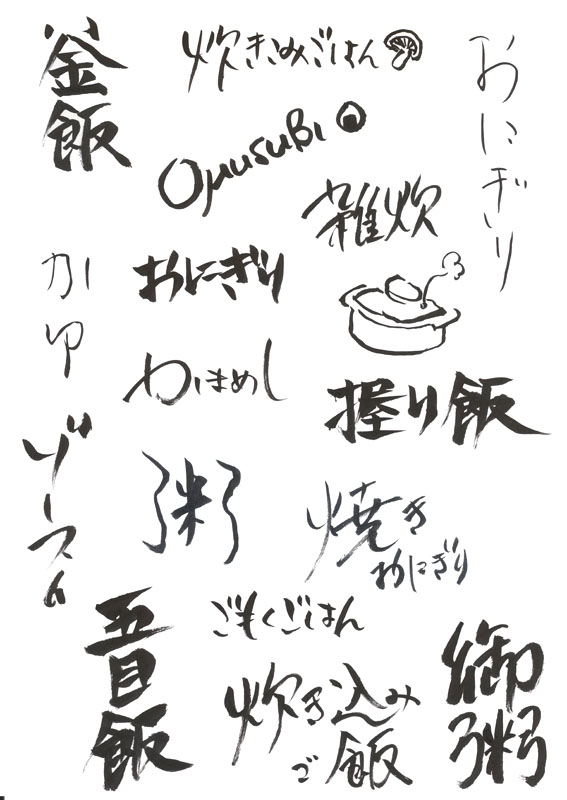 釜飯
炊きこみごはん
おにぎり
OmusuBi
雑炊
おにぎり
かゆ
かまめし
握り飯
ぞうすい
粥
焼き
おにぎり
ごもくごはん
五目飯
炊き込み
ご飯
御粥